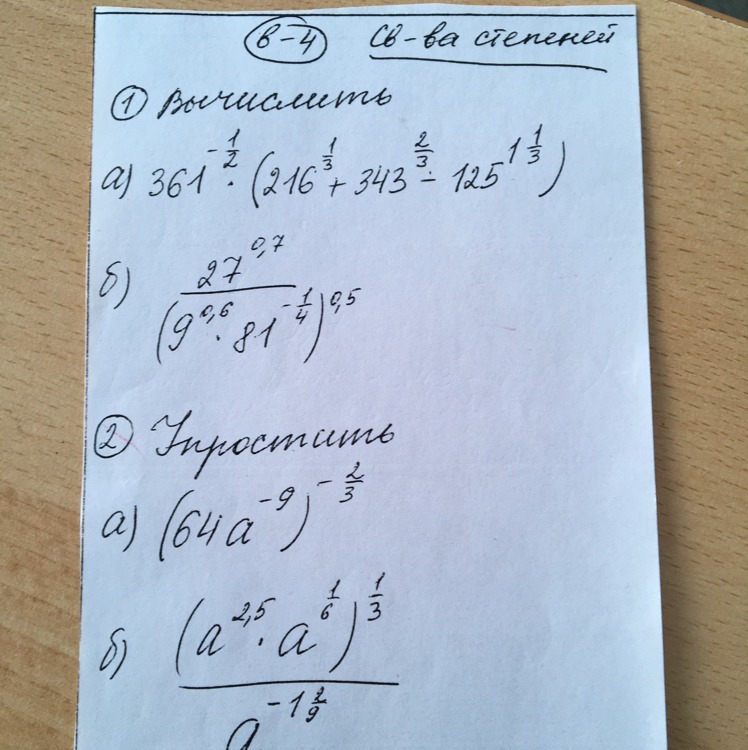 в-4 Св-ва степеней
① Вычислить
а) 361^(-1/2) · (216^(1/3) + 343^(2/3) - 125^(1 1/3))
б) 27^(0,7) / (9^(0,6) · 81^(-1/4))^(0,5)
② Упростить
а) (64a^(-9))^(-2/3)
б) (a^(2,5) · a^(1/6))^(1/3) / a^(-1 2/9)